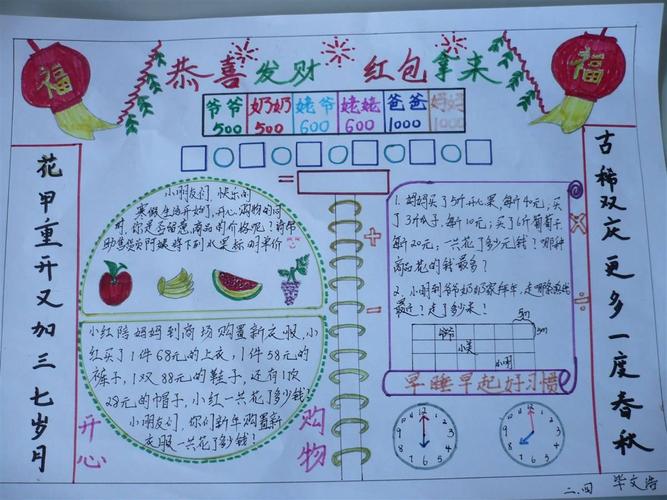 福
恭喜发财 红包拿来
福
爷爷 奶奶 姥爷 姥姥 爸爸 妈妈
500 500 600 600 1000 1000
花甲重开又加三七岁月
古稀双庆更多一度春秋
=
小朋友们,快乐的
寒假生活开始了,开心购物的同
时,你是否留意商品的价格呢?请帮
助售货员阿姨将下列水果标的单价
小红陪妈妈到商场购置新衣服,小
红买了1件68元的上衣,1件58元的
裤子,1双88元的鞋子,还有1顶
28元的帽子,小红一共花了多少钱?
小朋友们,你们新年购置新
衣服一共花了多少钱?
开心
购物
+
-
×
÷
1.妈妈买了5斤开心果,每斤40元,买
了3斤瓜子,每斤10元;买了6斤葡萄干,
每斤20元,一共花了多少元钱?哪种
商品花的钱最多?
2、小明到爷爷奶奶家拜年,走哪条路线
最近?走了多少米?
5m
5m
爷爷
小美
小明
早睡早起好习惯
12 1 2 3 4 5 6 7 8 9 10 11
12 1 2 3 4 5 6 7 8 9 10 11
二.四 毕文诗